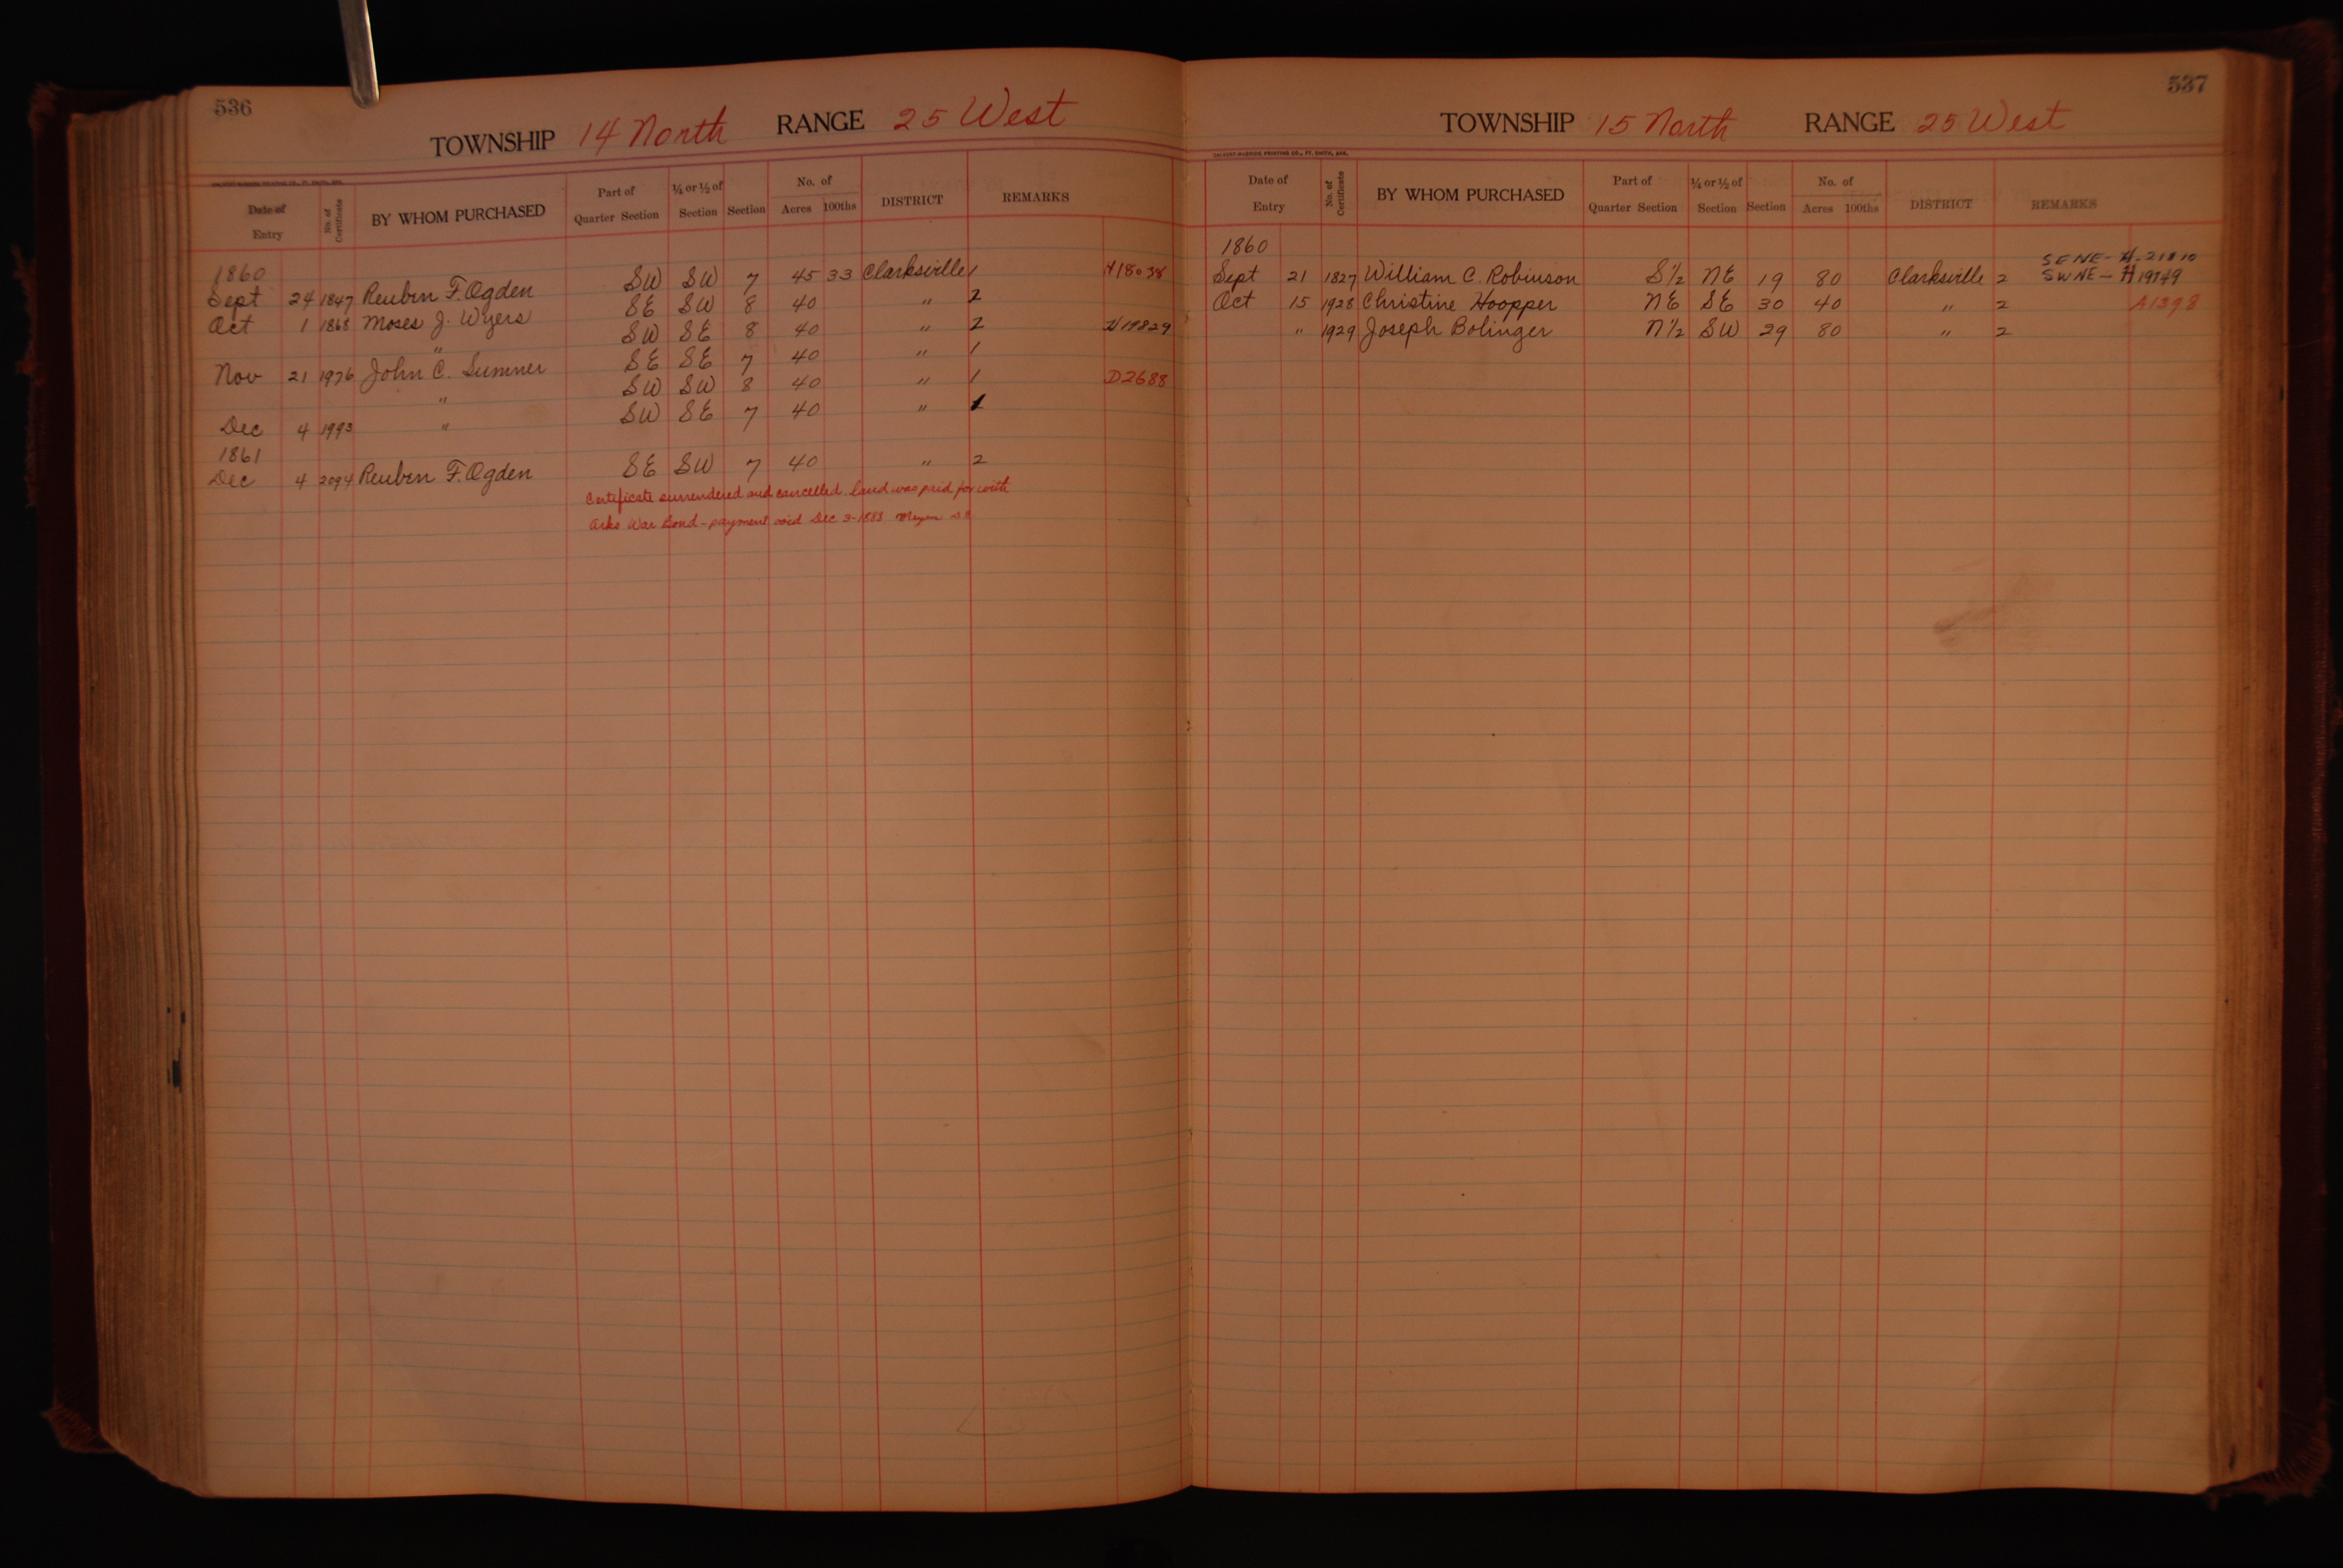 536
TOWNSHIP 14 North RANGE 25 West
CALVERT-McBRIDE PRINTING CO., FT. SMITH, ARK.
Date of Entry No. of Certificate BY WHOM PURCHASED Part of Quarter Section ¼ or ½ of Section Section No. of Acres 100ths DISTRICT REMARKS
1860
Sept 24 1847 Reuben F. Ogden SW SW 7 45 33 Clarksville 1 H18038
Oct 1 1868 Moses J. Wyers SE SW 8 40 " 2
" SW SE 8 40 " 2 H19829
Nov 21 1976 John C. Sumner SE SE 7 40 " 1
" SW SW 8 40 " 1 D2688
Dec 4 1993 " SW SE 7 40 " 1
1861
Dec 4 2094 Reuben F. Ogden SE SW 7 40 " 2
Certificate surrendered and cancelled. land was paid for with
Arks War Bond - payment void Dec 3-1883
537
TOWNSHIP 15 North RANGE 25 West
CALVERT-McBRIDE PRINTING CO., FT. SMITH, ARK.
Date of Entry No. of Certificate BY WHOM PURCHASED Part of Quarter Section ¼ or ½ of Section Section No. of Acres 100ths DISTRICT REMARKS
1860 SENE - H. 21810
Sept 21 1827 William C. Robinson S½ NE 19 80 Clarksville 2 SWNE - H 19749
Oct 15 1928 Christine Hoopper NE SE 30 40 " 2 A1398
" 1929 Joseph Bolinger N½ SW 29 80 " 2